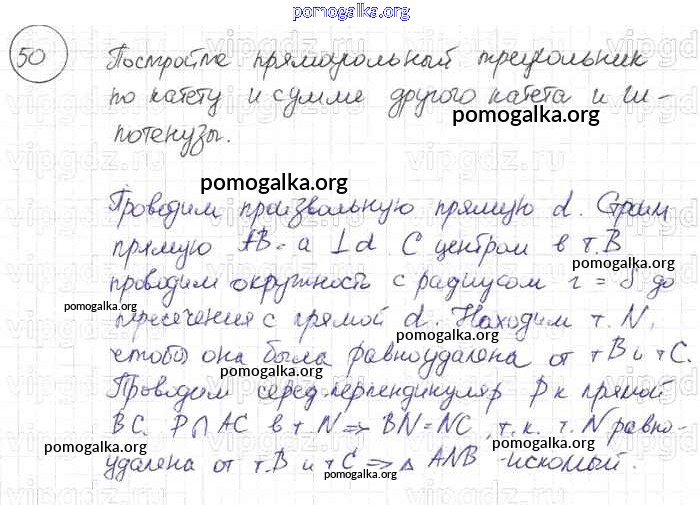 pomogalka.org
50 Постройте прямоугольный треугольник
по катету и сумме другого катета и ги-
потенузы.
pomogalka.org
pomogalka.org
Проводим произвольную прямую d. Строим
прямую AB=a ⊥ d. С центром в т.B
pomogalka.org
проводим окружность с радиусом r = S до
pomogalka.org
пересечения с прямой d. Находим т. N,
pomogalka.org
чтобы она была равноудалена от т B и т C.
pomogalka.org
Проводим серед. перпендикуляр P к прямой
BC. P ∩ AC в т N => BN=NC, т.к. т. N равно-
pomogalka.org
pomogalka.org
удалена от т.B и т C => △ ANB - искомый.